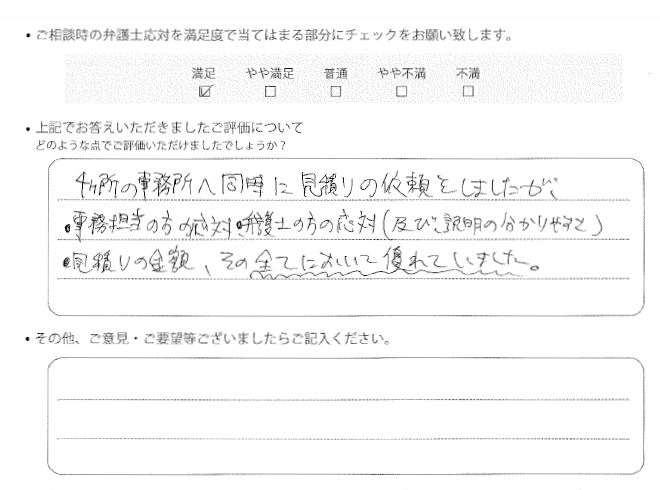 • ご相談時の弁護士応対を満足度で当てはまる部分にチェックをお願い致します。
満足 やや満足 普通 やや不満 不満
☑ □ □ □ □
• 上記でお答えいただきましたご評価について
どのような点でご評価いただけましたでしょうか?
4ヶ所の事務所へ同時に見積りの依頼をしましたが、
•事務担当の方の応対•弁護士の方の応対(及び、説明の分かりやすさ)
•見積りの金額、その全てにおいて優れていました。
• その他、ご意見・ご要望等ございましたらご記入ください。